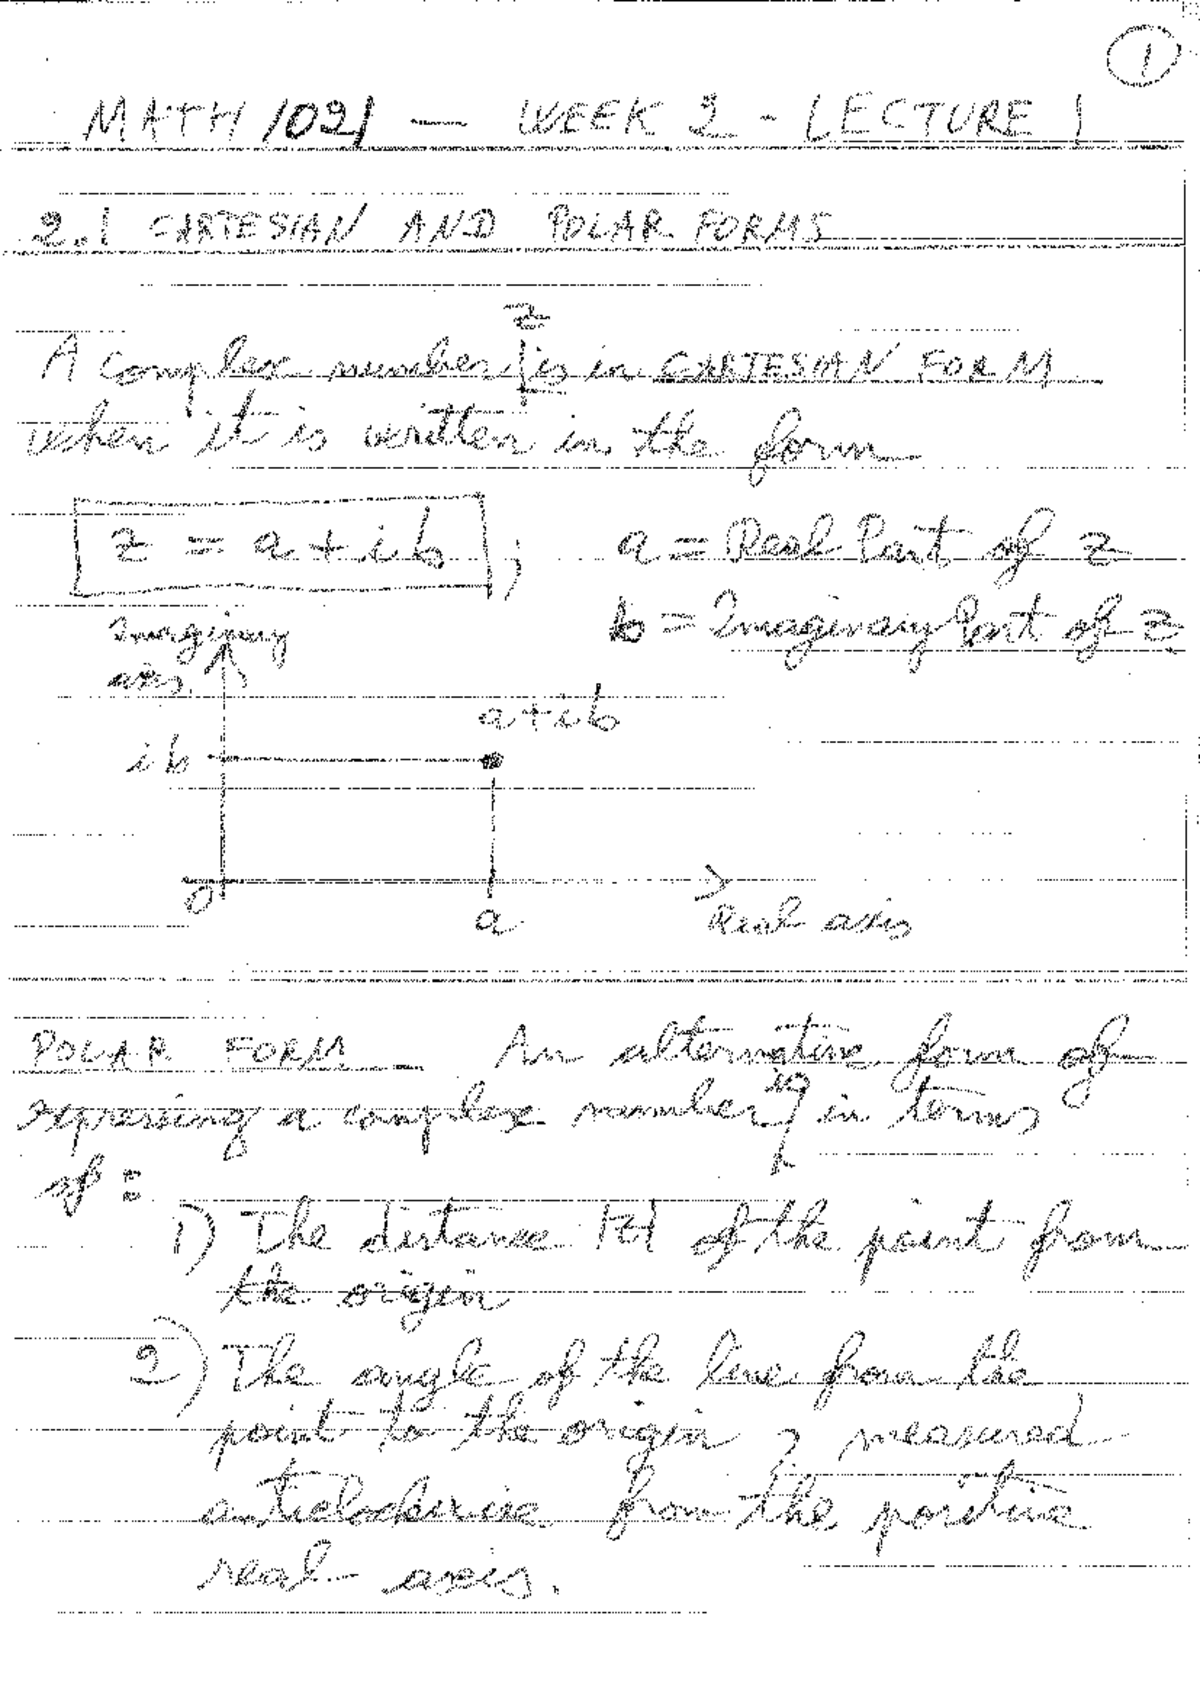 1
MATH 1021 — WEEK 2 - LECTURE 1
2.1 CARTESIAN AND POLAR FORMS
z
A complex number is in CARTESIAN FORM
when it is written in the form
z = a + ib ; a = Real Part of z
b = Imaginary Part of z
Imaginary
axis
a+ib
ib
0
a
Real axis
POLAR FORM - An alternative form of
is
expressing a complex number in terms
of :
1) The distance |z| of the point from
the origin
2) The angle of the line from the
point to the origin, measured
anticlockwise from the positive
real axis.